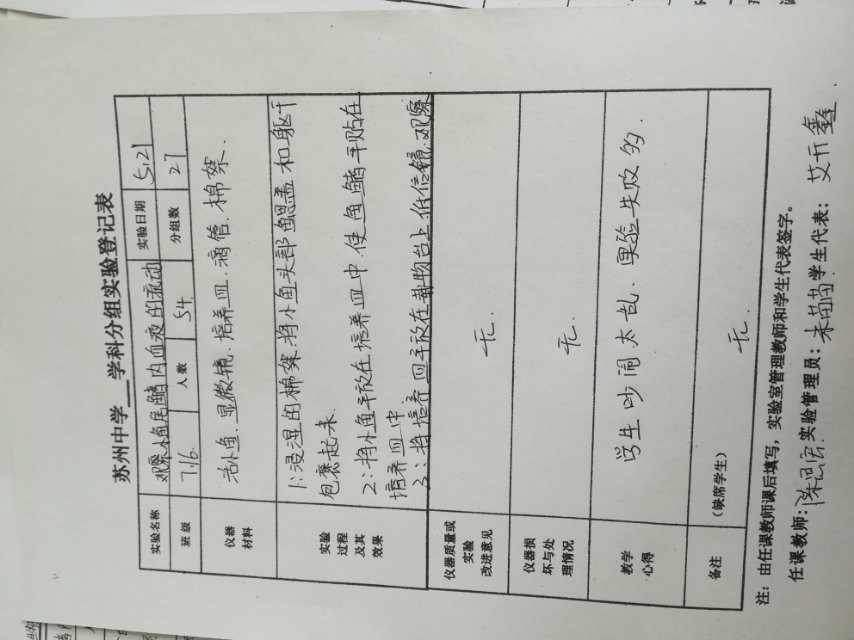 苏州中学__学科分组实验登记表
实验名称 观察小鱼尾鳍内血液的流动 实验日期 5.21
班级 7.16. 人数 54. 分组数 27
仪器材料 活小鱼、显微镜、培养皿、滴管、棉絮.
实验过程及其效果 1:浸湿的棉絮.将小鱼头部鳃盖和躯干
包裹起来.
2:将小鱼平放在培养皿中.使鱼尾鳍平贴在
培养皿中.
3:将培养皿平放在载物台上.低倍镜.观察
仪器质量或实验改进意见 无.
仪器损坏与处理情况 无.
教学心得 学生吵闹太乱.实验失败多.
备注 (缺席学生) 无.
注:由任课教师课后填写,实验室管理教师和学生代表签字。
任课教师: 实验管理员: 学生代表: